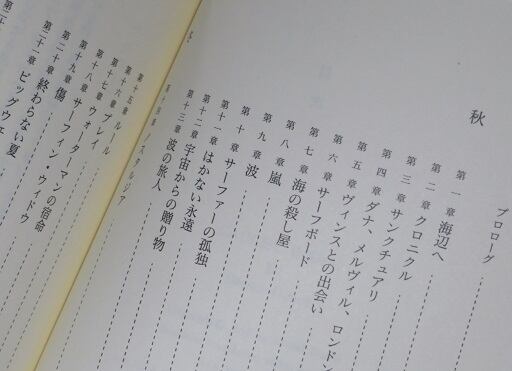 プロローグ
秋
第一章 海辺へ
第二章 クロニクル
第三章 サンクチュアリ
第四章 ダナ、メルヴィル、ロンドン
第五章 ヴィンスとの出会い
第六章 サーフボード
第七章 海の殺し屋
第八章 嵐
第九章 波
第十章 サーファーの孤独
第十一章 はかない永遠
第十二章 宇宙からの贈り物
第十三章 波の旅人
第十四章 ノスタルジア
第十五章 ルール
第十六章 プレイ
第十七章 ウォーターマンの宿命
第十八章 サーフィン・ウィドウ
第十九章 傷
第二十章 終わらない夏
第二十一章 ビッグウェ